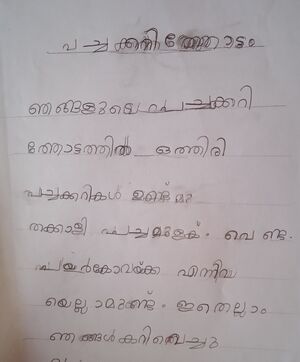 പച്ചക്കറിത്തോട്ടം
ഞങ്ങളുടെ പച്ചക്കറി
ത്തോട്ടത്തിൽ ഒത്തിരി
പച്ചക്കറികൾ ഉണ്ട്
തക്കാളി പച്ചമുളക്. വെണ്ട.
പയർകോവയ്ക്ക എന്നിവ
യെല്ലാമുണ്ട്. ഇതെല്ലാം
ഞങ്ങൾകറിവെച്ചു